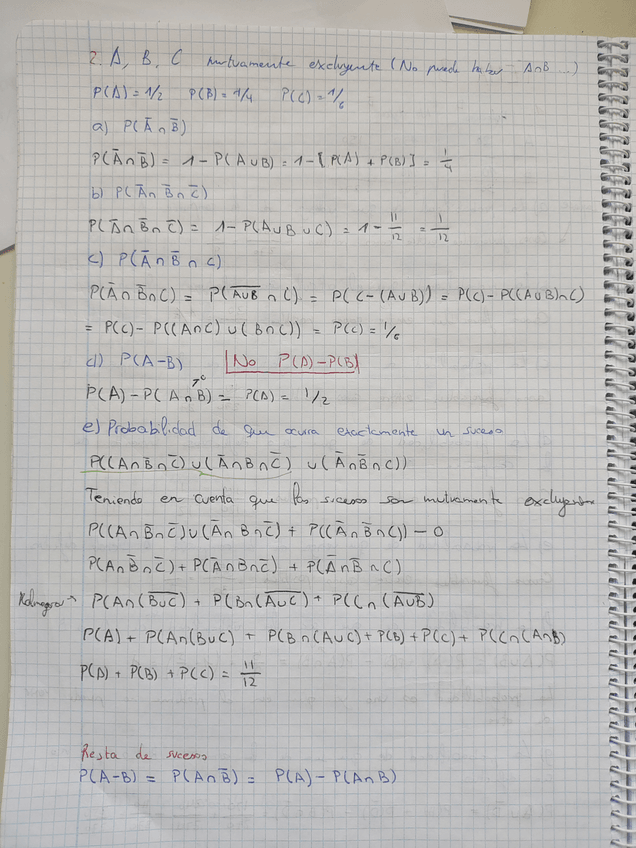 2. A, B, C mutuamente excluyente (No puede haber A∩B ...)
P(A) = 1/2 P(B) = 1/4 P(C) = 1/6
a) P(Ā∩B̄)
P(Ā∩B̄) = 1 - P(A∪B) = 1 - [P(A) + P(B)] = 1/4
b) P(Ā∩B̄∩C̄)
P(Ā∩B̄∩C̄) = 1 - P(A∪B∪C) = 1 - 11/12 = 1/12
c) P(Ā∩B̄∩C)
P(Ā∩B̄∩C) = P(A̅∪̅B̅ ∩ C) = P(C-(A∪B)) = P(C) - P((A∪B)∩C)
= P(C) - P((A∩C) ∪ (B∩C)) = P(C) = 1/6
d) P(A-B) No P(A)-P(B)
P(A) - P(A∩B)↗0 = P(A) = 1/2
e) Probabilidad de que ocurra exactamente un suceso
P((A∩B̄∩C̄) ∪ (Ā∩B∩C̄) ∪ (Ā∩B̄∩C))
Teniendo en cuenta que los sucesos son mutuamente excluyentes
P((A∩B̄∩C̄) ∪ (Ā∩B∩C̄) + P((Ā∩B̄∩C)) - 0
P(A∩B̄∩C̄) + P(Ā∩B∩C̄) + P(Ā∩B̄∩C)
→ P(A∩(B̅∪̅C̅) + P(B∩(A̅∪̅C̅) + P(C∩(A̅∪̅B̅)
P(A) + P(A∩(B∪C) + P(B∩(A∪C) + P(B) + P(C) + P(C∩(A∩B)
P(A) + P(B) + P(C) = 11/12
Resta de sucesos
P(A-B) = P(A∩B̄) = P(A) - P(A∩B)